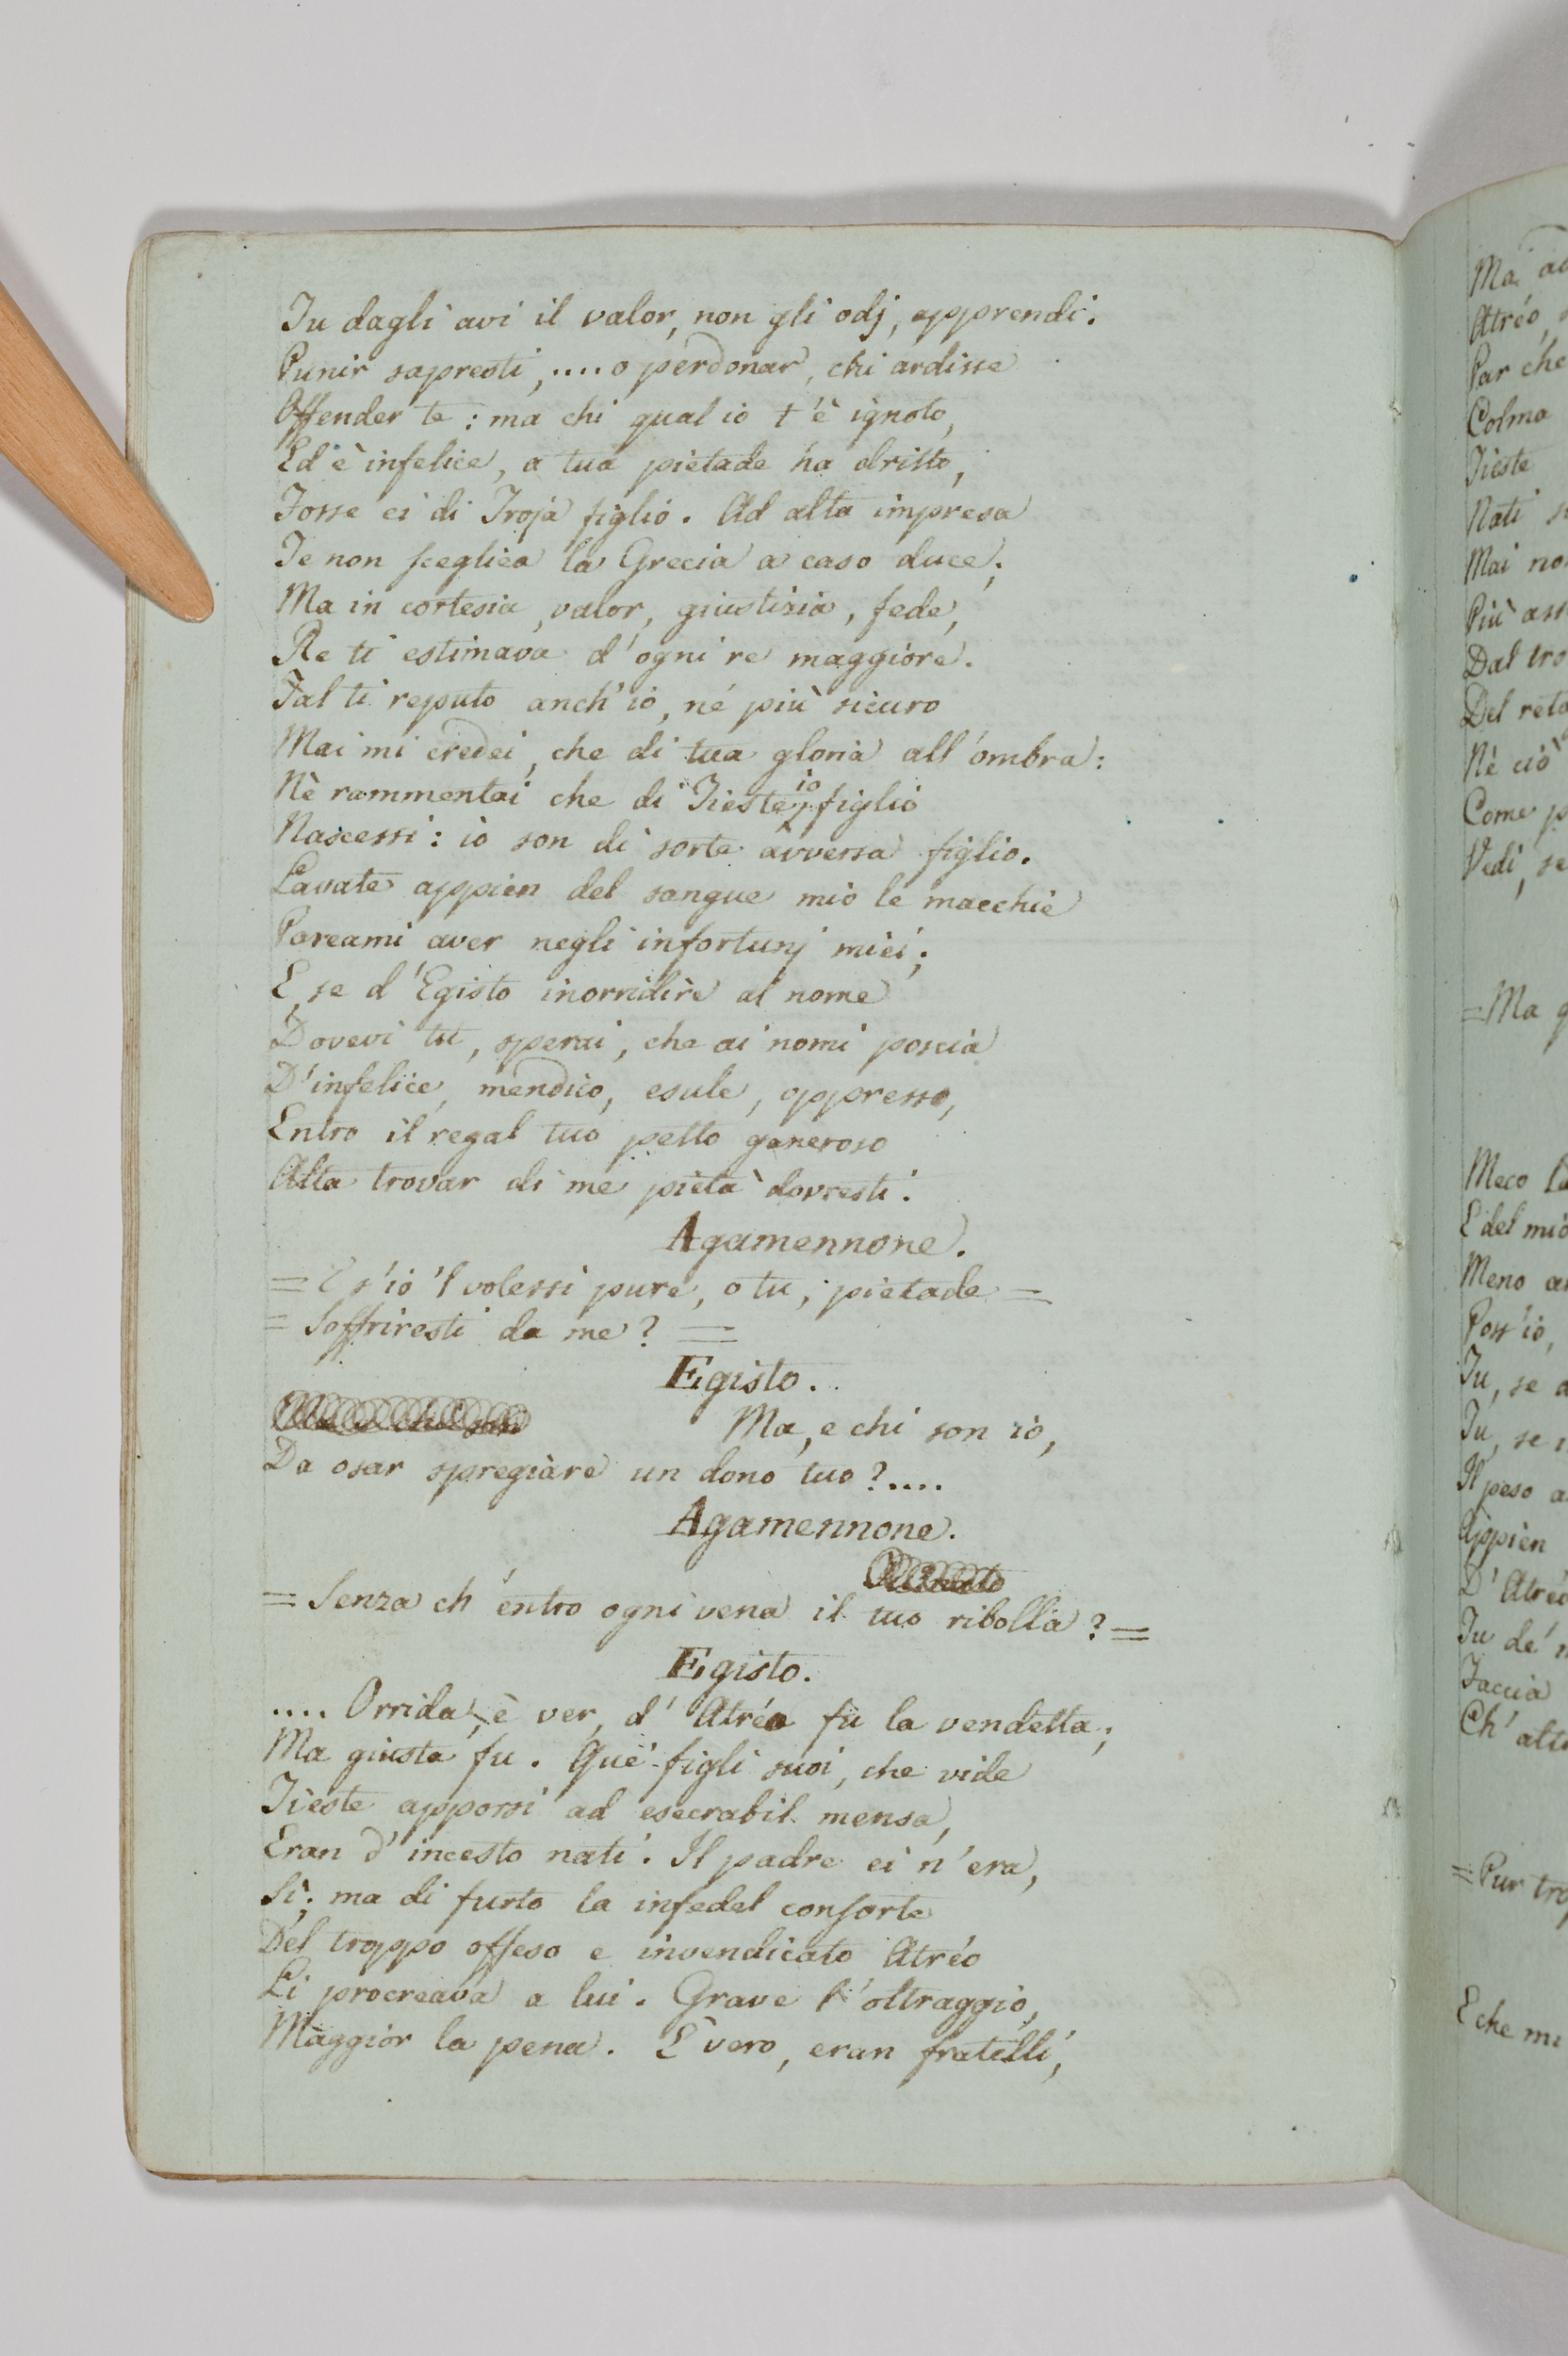 Tu dagli avi il valor, non gli odj, apprendi.
Punir sapresti, .... o perdonar, chi ardisse
Offender te : ma chi qual io t'è ignoto,
Ed è infelice, a tua pietade ha dritto,
Fosse ei di Troja figlio. Ad alta impresa
Te non scegliea la Grecia a caso duce;
Ma in cortesia, valor, giustizia, fede,
Re ti estimava d'ogni re maggiore.
Tal ti reputo anch'io, né più sicuro
Mai mi credei, che di tua gloria all'ombra:
Nè rammentai che di Tieste io figlio
Nascessi: io son di sorte avversa figlio.
Lavate appien del sangue mio le macchie
Pareami aver negli infortunj miei;
E, se d'Egisto inorridire al nome
Dovevi tu, sperai, che ai nomi poscia
D'infelice, mendico, esule, oppresso,
Entro il regal tuo petto generoso
Alta trovar di me pietà dovresti.
Agamennone.
= E s'io 'l volessi pure, o tu, pietade =
= Soffriresti da me? =
Egisto.
Ma, e chi son io,
Da osar spregiare un dono tuo?....
Agamennone.
= Senza ch'entro ogni vena il tuo ribolla? =
Egisto.
.... Orrida, è ver, d'Atréo fu la vendetta;
Ma giusta fu. Que' figli suoi, che vide
Tieste apporsi ad esecrabil mensa,
Eran d'incesto nati. Il padre ei n'era,
Sì; ma di furto la infedel consorte
Del troppo offeso e invendicato Atréo
Li procreava a lui. Grave l'oltraggio,
Maggior la pena. È vero, eran fratelli;
Ma
Atréo,
Par che
Colma
Tieste
Nati
Mai
Più
Dal
Del
Né ciò
Come
Vedi, se
= Ma
Meco
E del mio
Meno
Poss'io,
Tu, se
Tu, se
Il peso
Appien
D'Atréo
Tu de'
Faccia
Ch'
= Pur
E che mi